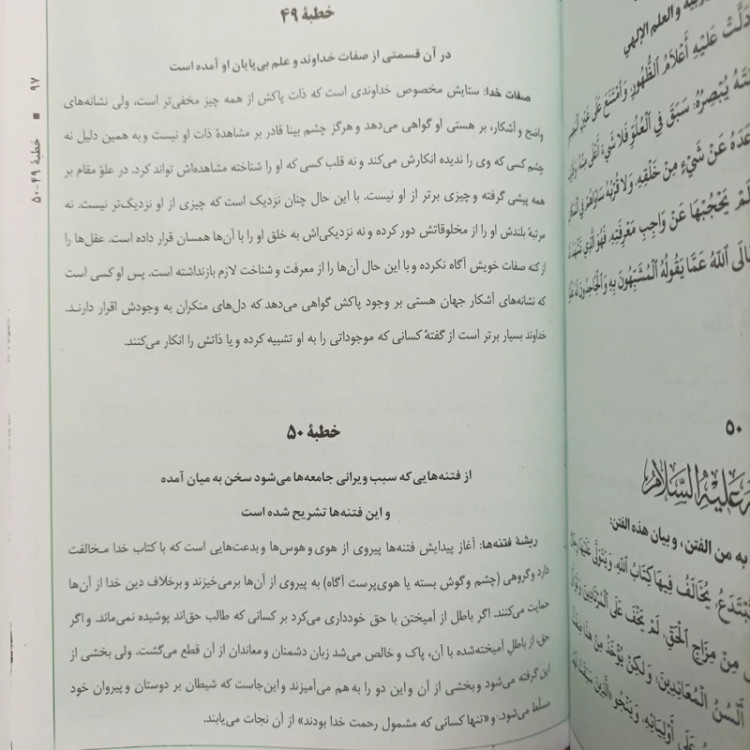 خطبهٔ ۴۹
در آن قسمتی از صفات خداوند و علم بی‌پایان او آمده است
صفات خدا: ستایش مخصوص خداوندی است که ذات پاکش از همه چیز مخفی‌تر است، ولی نشانه‌های
واضح و آشکار، بر هستی او گواهی می‌دهد و هرگز چشم بینا قادر بر مشاهدهٔ ذات او نیست و به همین دلیل نه
چشم کسی که وی را ندیده انکارش می‌کند و نه قلب کسی که او را شناخته مشاهده‌اش تواند کرد. در علوّ مقام بر
همه پیشی گرفته و چیزی برتر از او نیست. با این حال چنان نزدیک است که چیزی از او نزدیک‌تر نیست. نه
مرتبهٔ بلندش او را از مخلوقاتش دور کرده و نه نزدیکی‌اش به خلق او را با آن‌ها همسان قرار داده است. عقل‌ها را
از کنه صفات خویش آگاه نکرده و با این حال آن‌ها را از معرفت و شناخت لازم بازنداشته است. پس او کسی است
که نشانه‌های آشکار جهان هستی بر وجود پاکش گواهی می‌دهد که دل‌های منکران به وجودش اقرار دارند.
خداوند بسیار برتر است از گفتهٔ کسانی که موجوداتی را به او تشبیه کرده و یا ذاتش را انکار می‌کنند.
خطبهٔ ۵۰
از فتنه‌هایی که سبب ویرانی جامعه‌ها می‌شود سخن به میان آمده
و این فتنه‌ها تشریح شده است
ریشهٔ فتنه‌ها: آغاز پیدایش فتنه‌ها پیروی از هوی و هوس‌ها و بدعت‌هایی است که با کتاب خدا مخالفت
دارد و گروهی (چشم و گوش بسته یا هوی‌پرست آگاه) به پیروی از آن‌ها برمی‌خیزند و برخلاف دین خدا از آن‌ها
حمایت می‌کنند. اگر باطل از آمیختن با حق خودداری می‌کرد بر کسانی که طالب حق‌اند پوشیده نمی‌ماند. و اگر
حق، از باطلِ آمیخته‌شده با آن، پاک و خالص می‌شد زبان دشمنان و معاندان از آن قطع می‌گشت. ولی بخشی از
این گرفته می‌شود و بخشی از آن و این دو را به هم می‌آمیزند و این‌جاست که شیطان بر دوستان و پیروان خود
مسلّط می‌شود. و «تنها کسانی که مشمول رحمت خدا بودند» از آن نجات می‌یابند.
۹۷ ■ خطبهٔ ۴۹-۵۰
والعلم الإلهي
دَلَّتْ عَلَيْهِ أَعْلَامُ الظُّهُورِ، وَامْتَنَعَ عَلَى
يُبْصِرُهُ: سَبَقَ فِي الْعُلُوِّ فَلَا شَيْءَ أَعْلَى مِنْهُ
عَنْ شَيْءٍ مِنْ خَلْقِهِ، وَلَا قُرْبُهُ سَاوَاهُمْ فِي
يَحْجُبْهَا عَنْ وَاجِبِ مَعْرِفَتِهِ، فَهُوَ الَّذِي
اللهُ عَمَّا يَقُولُهُ الْمُشَبِّهُونَ بِهِ وَالْجَاحِدُونَ لَهُ
۵۰
عليه السلام
به من الفتن، و بيان هذه الفتن:
يُخَالَفُ فِيهَا كِتَابُ اللهِ، وَيَتَوَلَّى عَلَيْهَا
مِنْ مِزَاجِ الْحَقِّ، لَمْ يَخْفَ عَلَى الْمُرْتَادِينَ
أَلْسُنُ الْمُعَانِدِينَ، وَلكِنْ يُؤْخَذُ مِنْ هذَا
عَلَى أَوْلِيَائِهِ، وَيَنْجُو «الَّذِينَ سَبَقَتْ